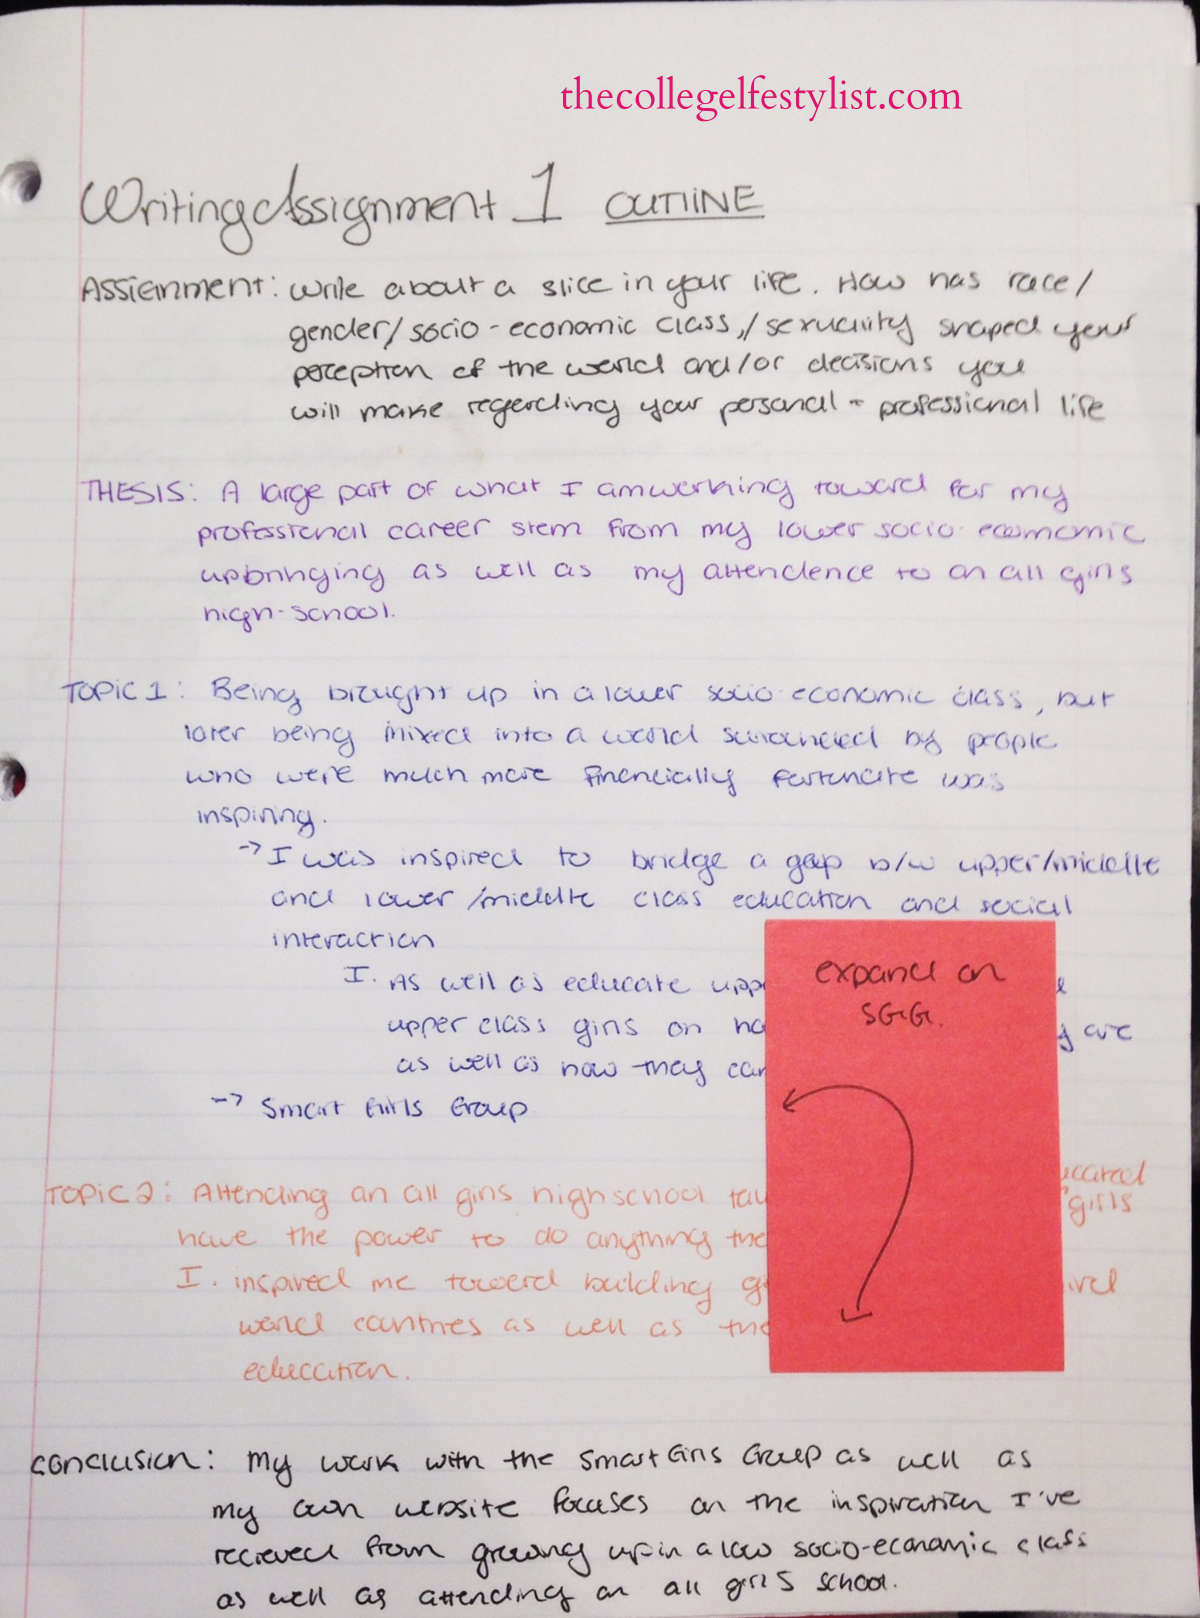 thecollegelfestylist.com
Writing Assignment 1 OUTlINE
Assignment: write about a slice in your life. How has race/
gender/socio-economic class,/sexuality shaped your
perception of the world and/or decisions you
will make regarding your personal + professional life
THESIS: A large part of what I am working toward for my
professional career stem from my lower socio-economic
upbringing as well as my attendence to an all girls
high-school.
TOPIC 1: Being brought up in a lower socio-economic class, but
later being mixed into a world surrounded by people
who were much more financially fortunate was
inspiring.
-> I was inspired to bridge a gap b/w upper/middle
and lower/middle class education and social
interaction
I. As well as educate upp
upper class girls on ho are
as well as how they can
expand on
SGG.
-> Smart Girls Group
TOPIC 2: Attending an all girls high school tau ucated
girls
have the power to do anything the
I. inspired me toward building g
world countries as well as the
education.
conclusion: My work with the Smart Girls Group as well as
my own website focuses on the inspiration I've
recieved from growing up in a low socio-economic class
as well as attending an all girls school.